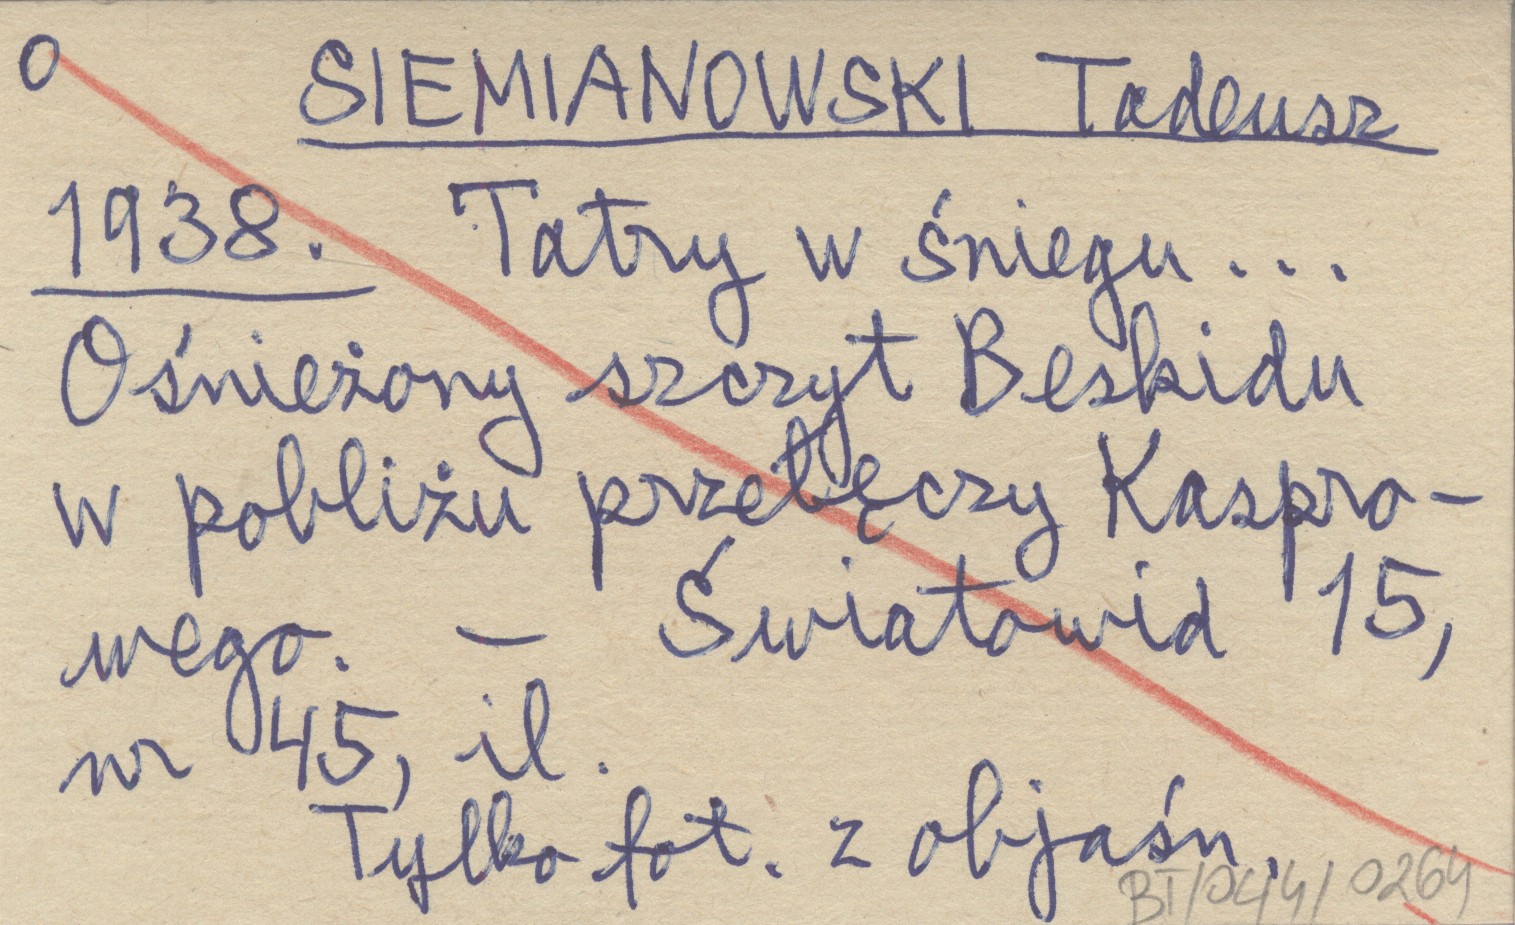 O SIEMIANOWSKI Tadeusz
1938. Tatry w śniegu...
Ośnieżony szczyt Beskidu
w pobliżu przełęczy Kaspro-
wego. – Światowid 15,
nr 45, il.
Tylko fot. z objaśn.
BT/044/0264